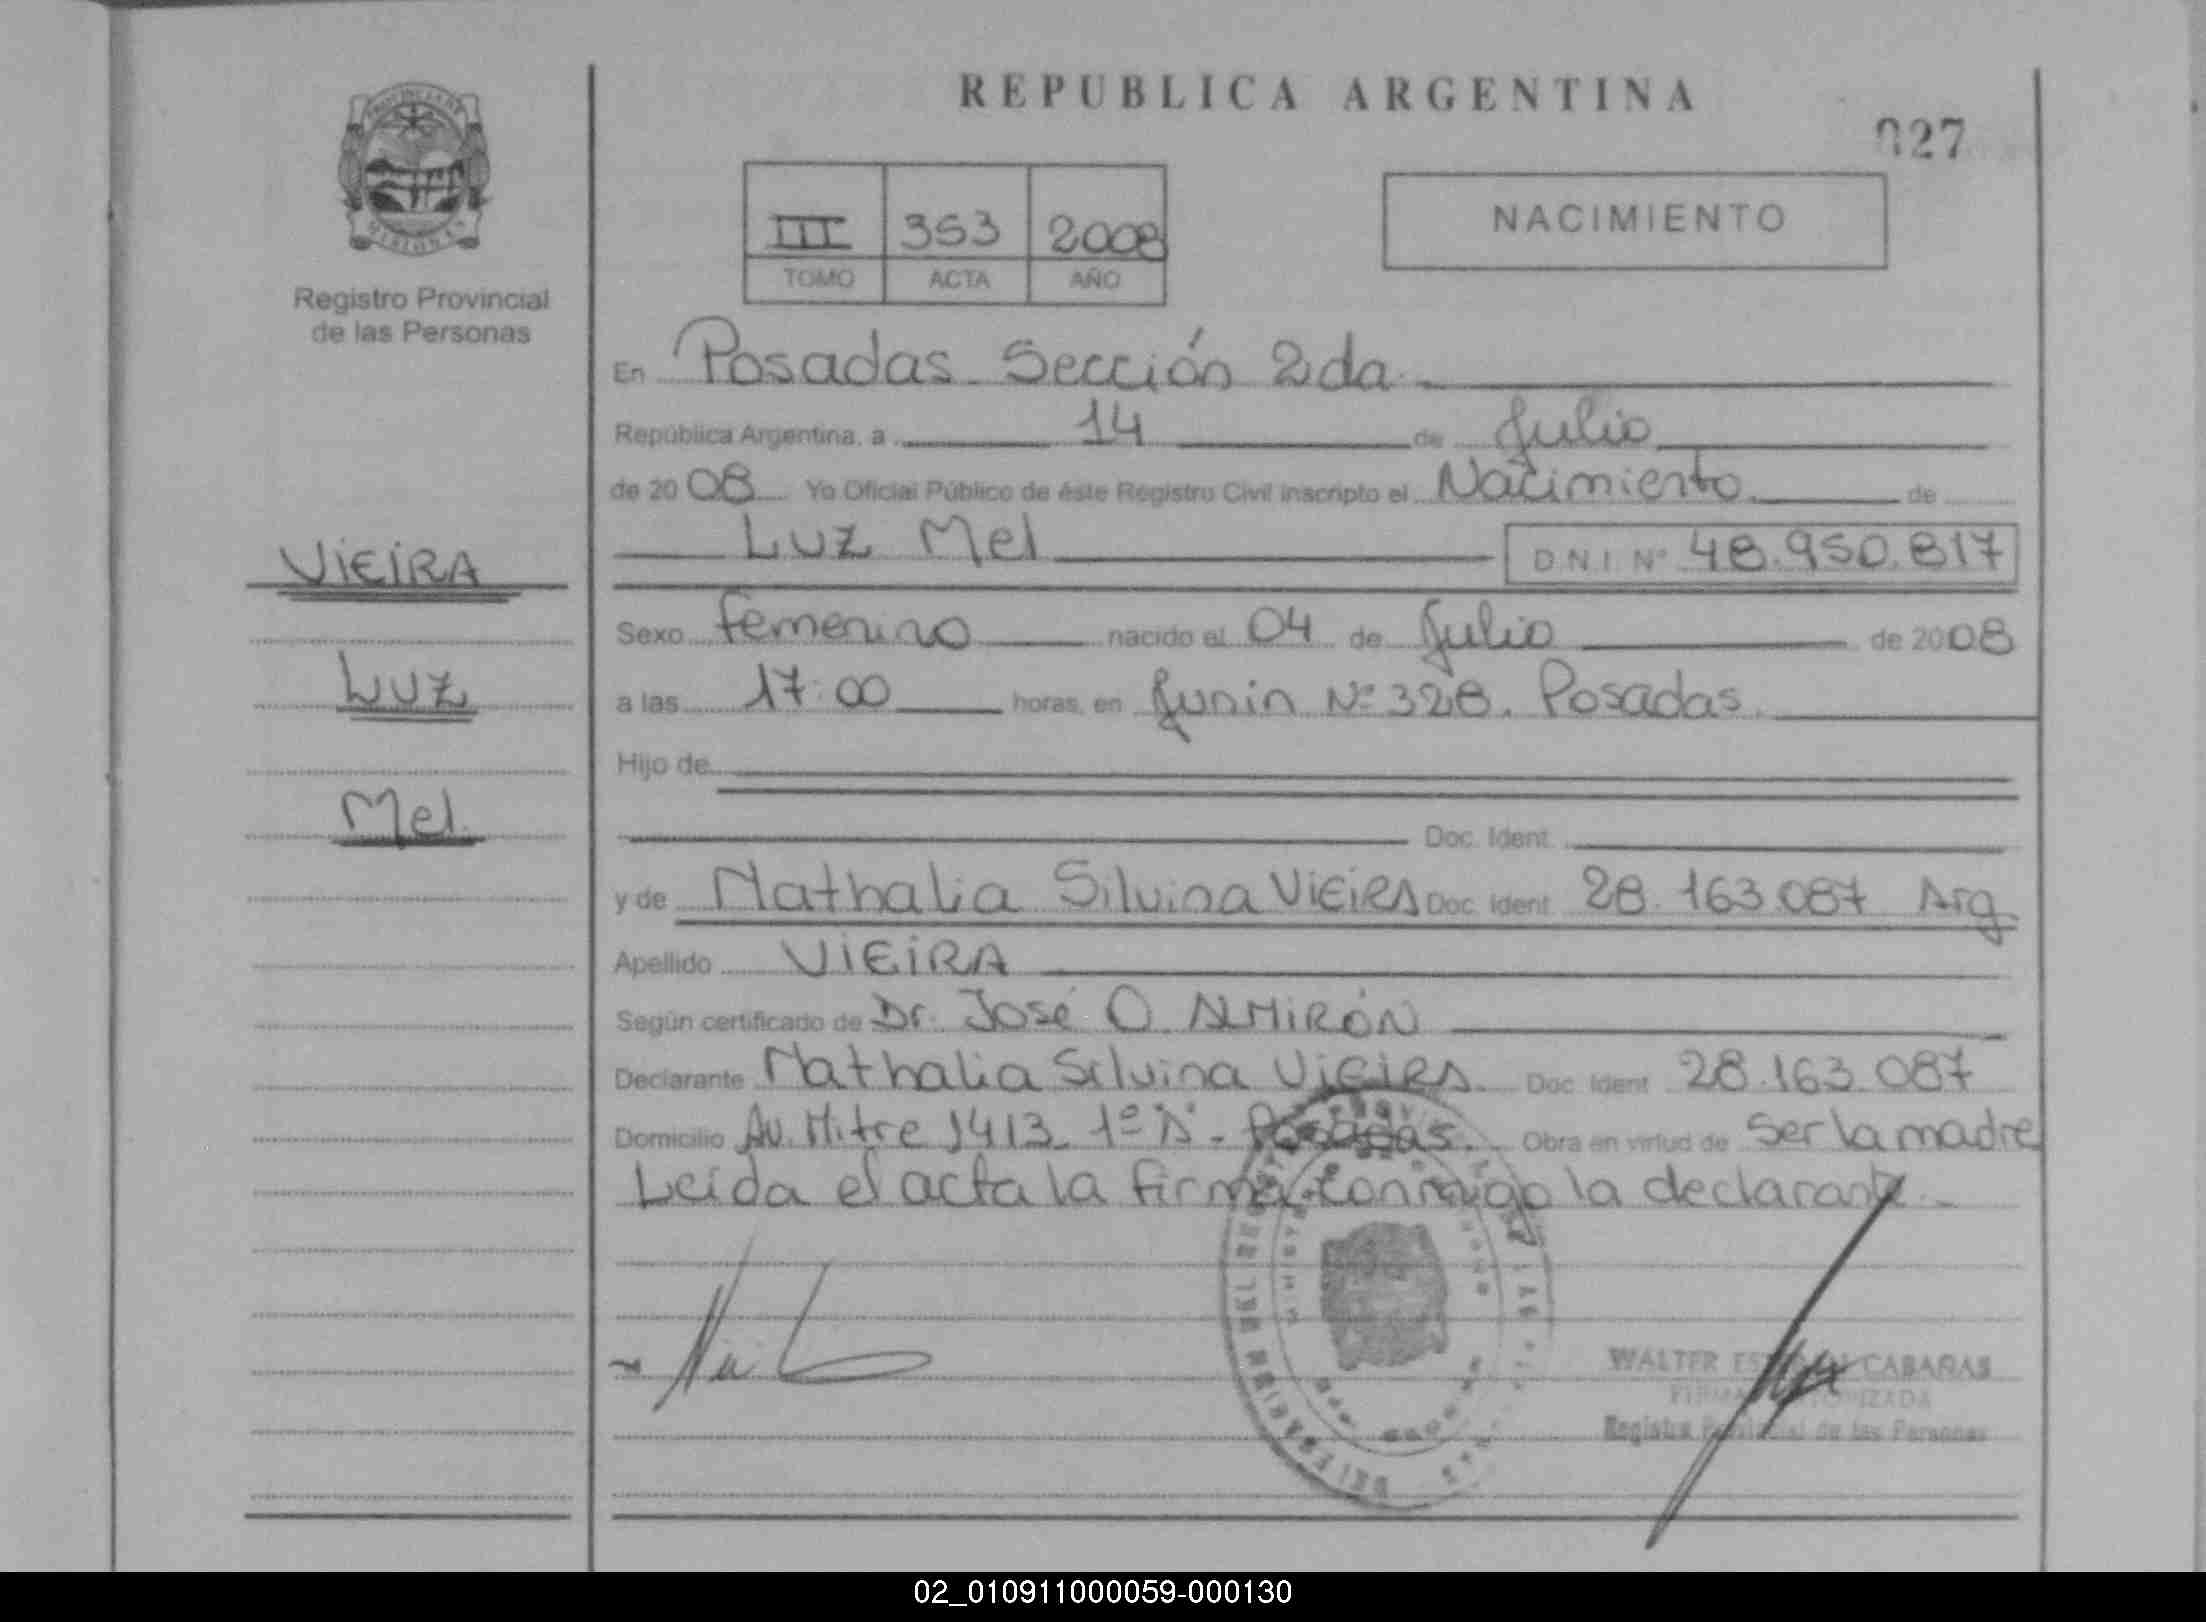 REPUBLICA ARGENTINA
027
PROVINCIA DE
MISIONES
Registro Provincial
de las Personas
III 353 2008
TOMO ACTA AÑO
NACIMIENTO
En Posadas Sección 2da.
República Argentina, a 14 de Julio
de 2008 Yo Oficial Público de éste Registro Civil inscripto el Nacimiento de
Luz Mel D.N.I. Nº 48.950.817
VIEIRA
Luz
Mel.
Sexo femenino nacido el 04 de Julio de 2008
a las 17:00 horas, en Junin Nº 328. Posadas.
Hijo de
Doc. Ident.
y de Nathalia Silvina VIEIRA Doc. Ident 28.163.087 Arg.
Apellido VIEIRA
Según certificado de Dr. José O. ALMIRÓN
Declarante Nathalia Silvina VIEIRA. Doc. Ident 28.163.087
Domicilio Av. Mitre 1413 1º A. Posadas. Obra en virtud de Ser la madre
Leída el acta la firma conmigo la declarante.
WALTER CABAÑAS
FIRMA AUTORIZADA
Registro Provincial de las Personas
02_010911000059-000130